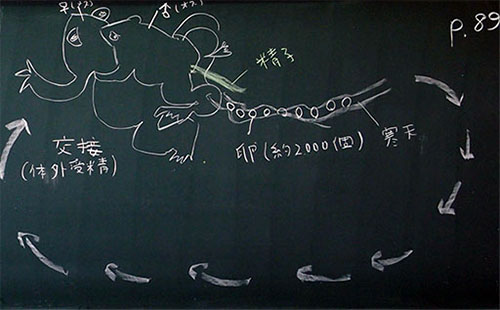 ♀(メス)
♂(オス)
p.89
精子
交接
(体外受精)
卵(約2000個)
寒天